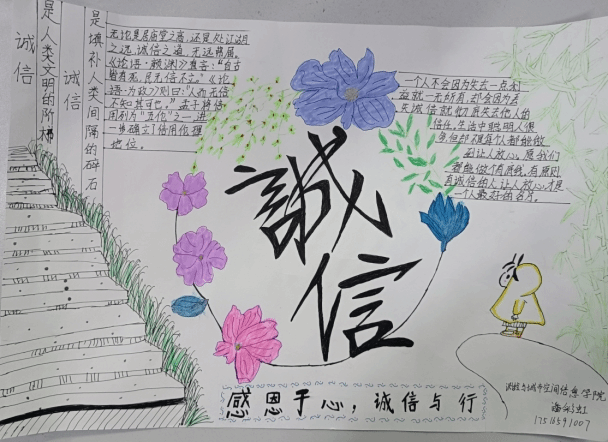 诚信
是人类文明的阶梯
诚信
是填补人类间隔的碎石
无论是居庙堂之高，还是处江湖
之远，诚信之道，无远弗届。
《论语·颜渊》有言："自古
皆有死，民无信不立。"《论
语·为政》则曰："人而无信，
不知其可也。"孟子将信
用列为"五伦"之一，进
一步确立了信用伦理
地位。
一个人不会因为失去一点利
益就一无所有，却会因为丢
失诚信就彻底失去他人的
信任。生活中聪明人很
多，但并不是每个都能做
到让人放心。愿我们
都能做个有底线、有原则
有诚信的人，让人放心，才是
一个人最好的名片。
誠
信
感恩于心，诚信与行
17516591007